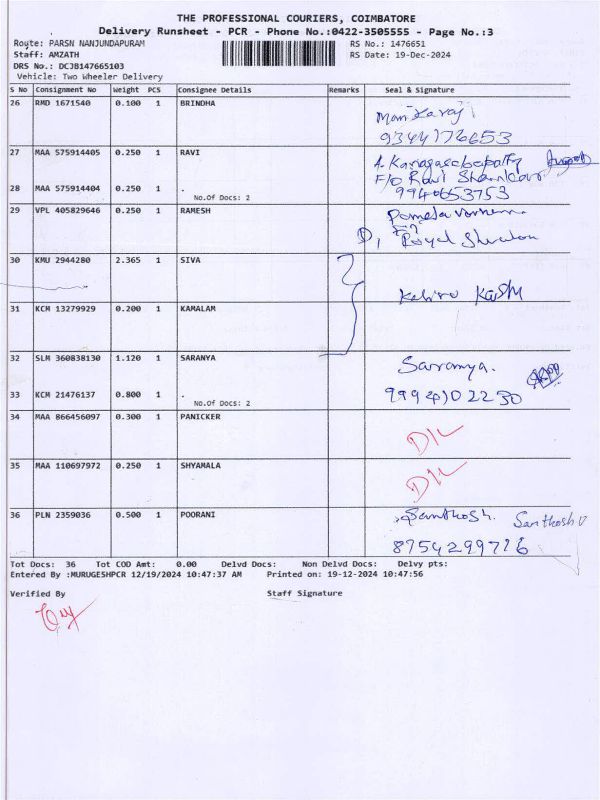 THE PROFESSIONAL COURIERS, COIMBATORE
Delivery Runsheet - PCR - Phone No.:0422-3505555 - Page No.:3
Route: PARSN NANJUNDAPURAM RS No.: 1476651
Staff: AMZATH RS Date: 19-Dec-2024
DRS No.: DCJB147665103
Vehicle: Two Wheeler Delivery
S No Consignment No Weight PCS Consignee Details Remarks Seal & Signature
26 RMD 1671540 0.100 1 BRINDHA
9344176653
27 MAA 575914405 0.250 1 RAVI
F/O Ravi Shankar
28 MAA 575914404 0.250 1 .
No.Of Docs: 2
9940653753
29 VPL 405829646 0.250 1 RAMESH
Royal
30 KMU 2944280 2.365 1 SIVA
31 KCM 13279929 0.200 1 KAMALAM
32 SLM 360838130 1.120 1 SARANYA Saranya.
33 KCM 21476137 0.800 1 . 9994102230
No.Of Docs: 2
34 MAA 866456097 0.300 1 PANICKER
D/L
35 MAA 110697972 0.250 1 SHYAMALA
D/L
36 PLN 2359036 0.500 1 POORANI Santhosh. Santhosh
8754299716
Tot Docs: 36 Tot COD Amt: 0.00 Delvd Docs: Non Delvd Docs: Delvy pts:
Entered By :MURUGESHPCR 12/19/2024 10:47:37 AM Printed on: 19-12-2024 10:47:56
Verified By Staff Signature